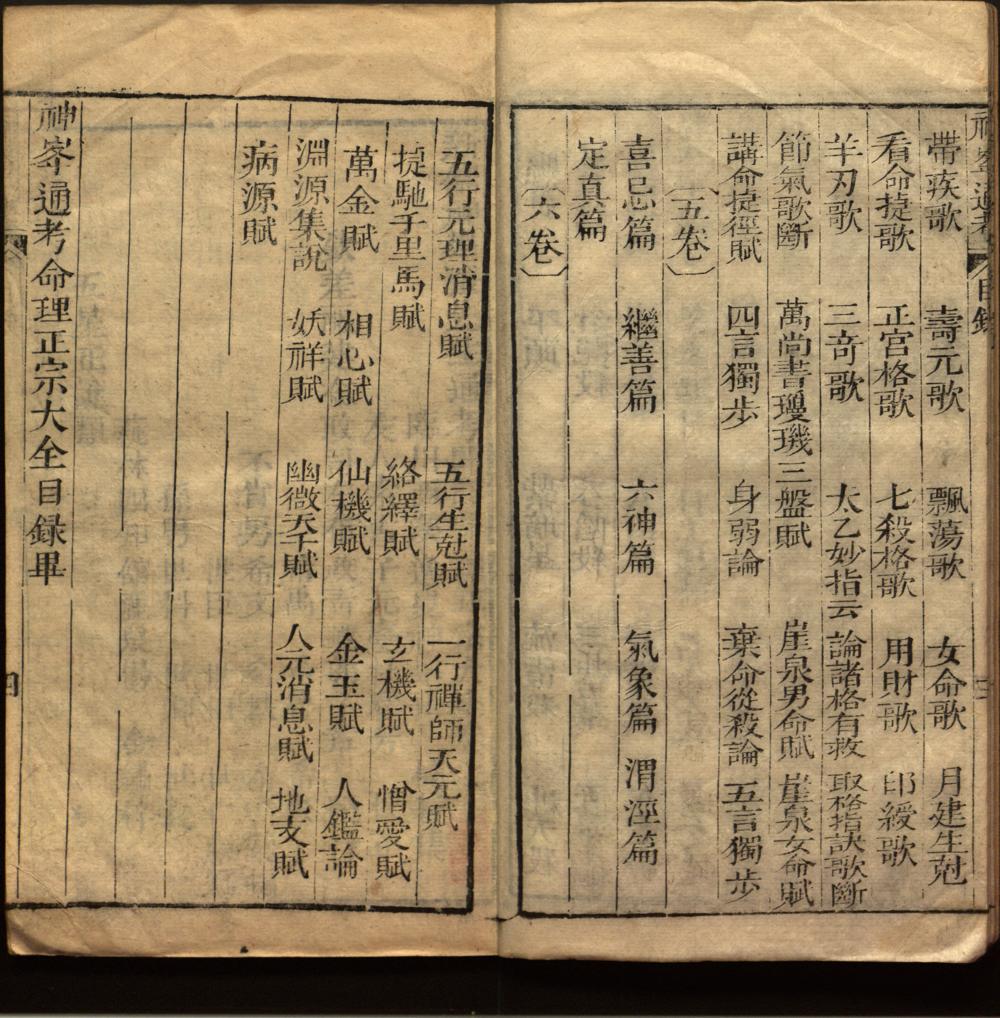 帶疾歌 壽元歌 飄蕩歌 女命歌 月建生尅
看命㨗歌 正官格歌 七殺格歌 用財歌 印綬歌
羊刃歌 三奇歌 太乙妙指云 論諸格有救 取格指訣歌斷
節氣歌斷 萬尚書璣三盤賦 崖泉男命賦 崖泉女命賦
講命捷徑賦 四言獨步 身弱論 棄命從殺論 五言獨步
〔五卷〕
喜忌篇 繼善篇 六神篇 氣象篇 渭涇篇
定真篇
〔六卷〕
五行元理消息賦 五行生尅賦 一行禪師天元賦
捉馳千里馬賦 絡繹賦 玄機賦 憎愛賦
萬金賦 相心賦 仙機賦 金玉賦 人鑑論
淵源集說 妖祥賦 幽微天千賦 人元消息賦 地支賦
病源賦
神峯通考命理正宗大全目録畢
四